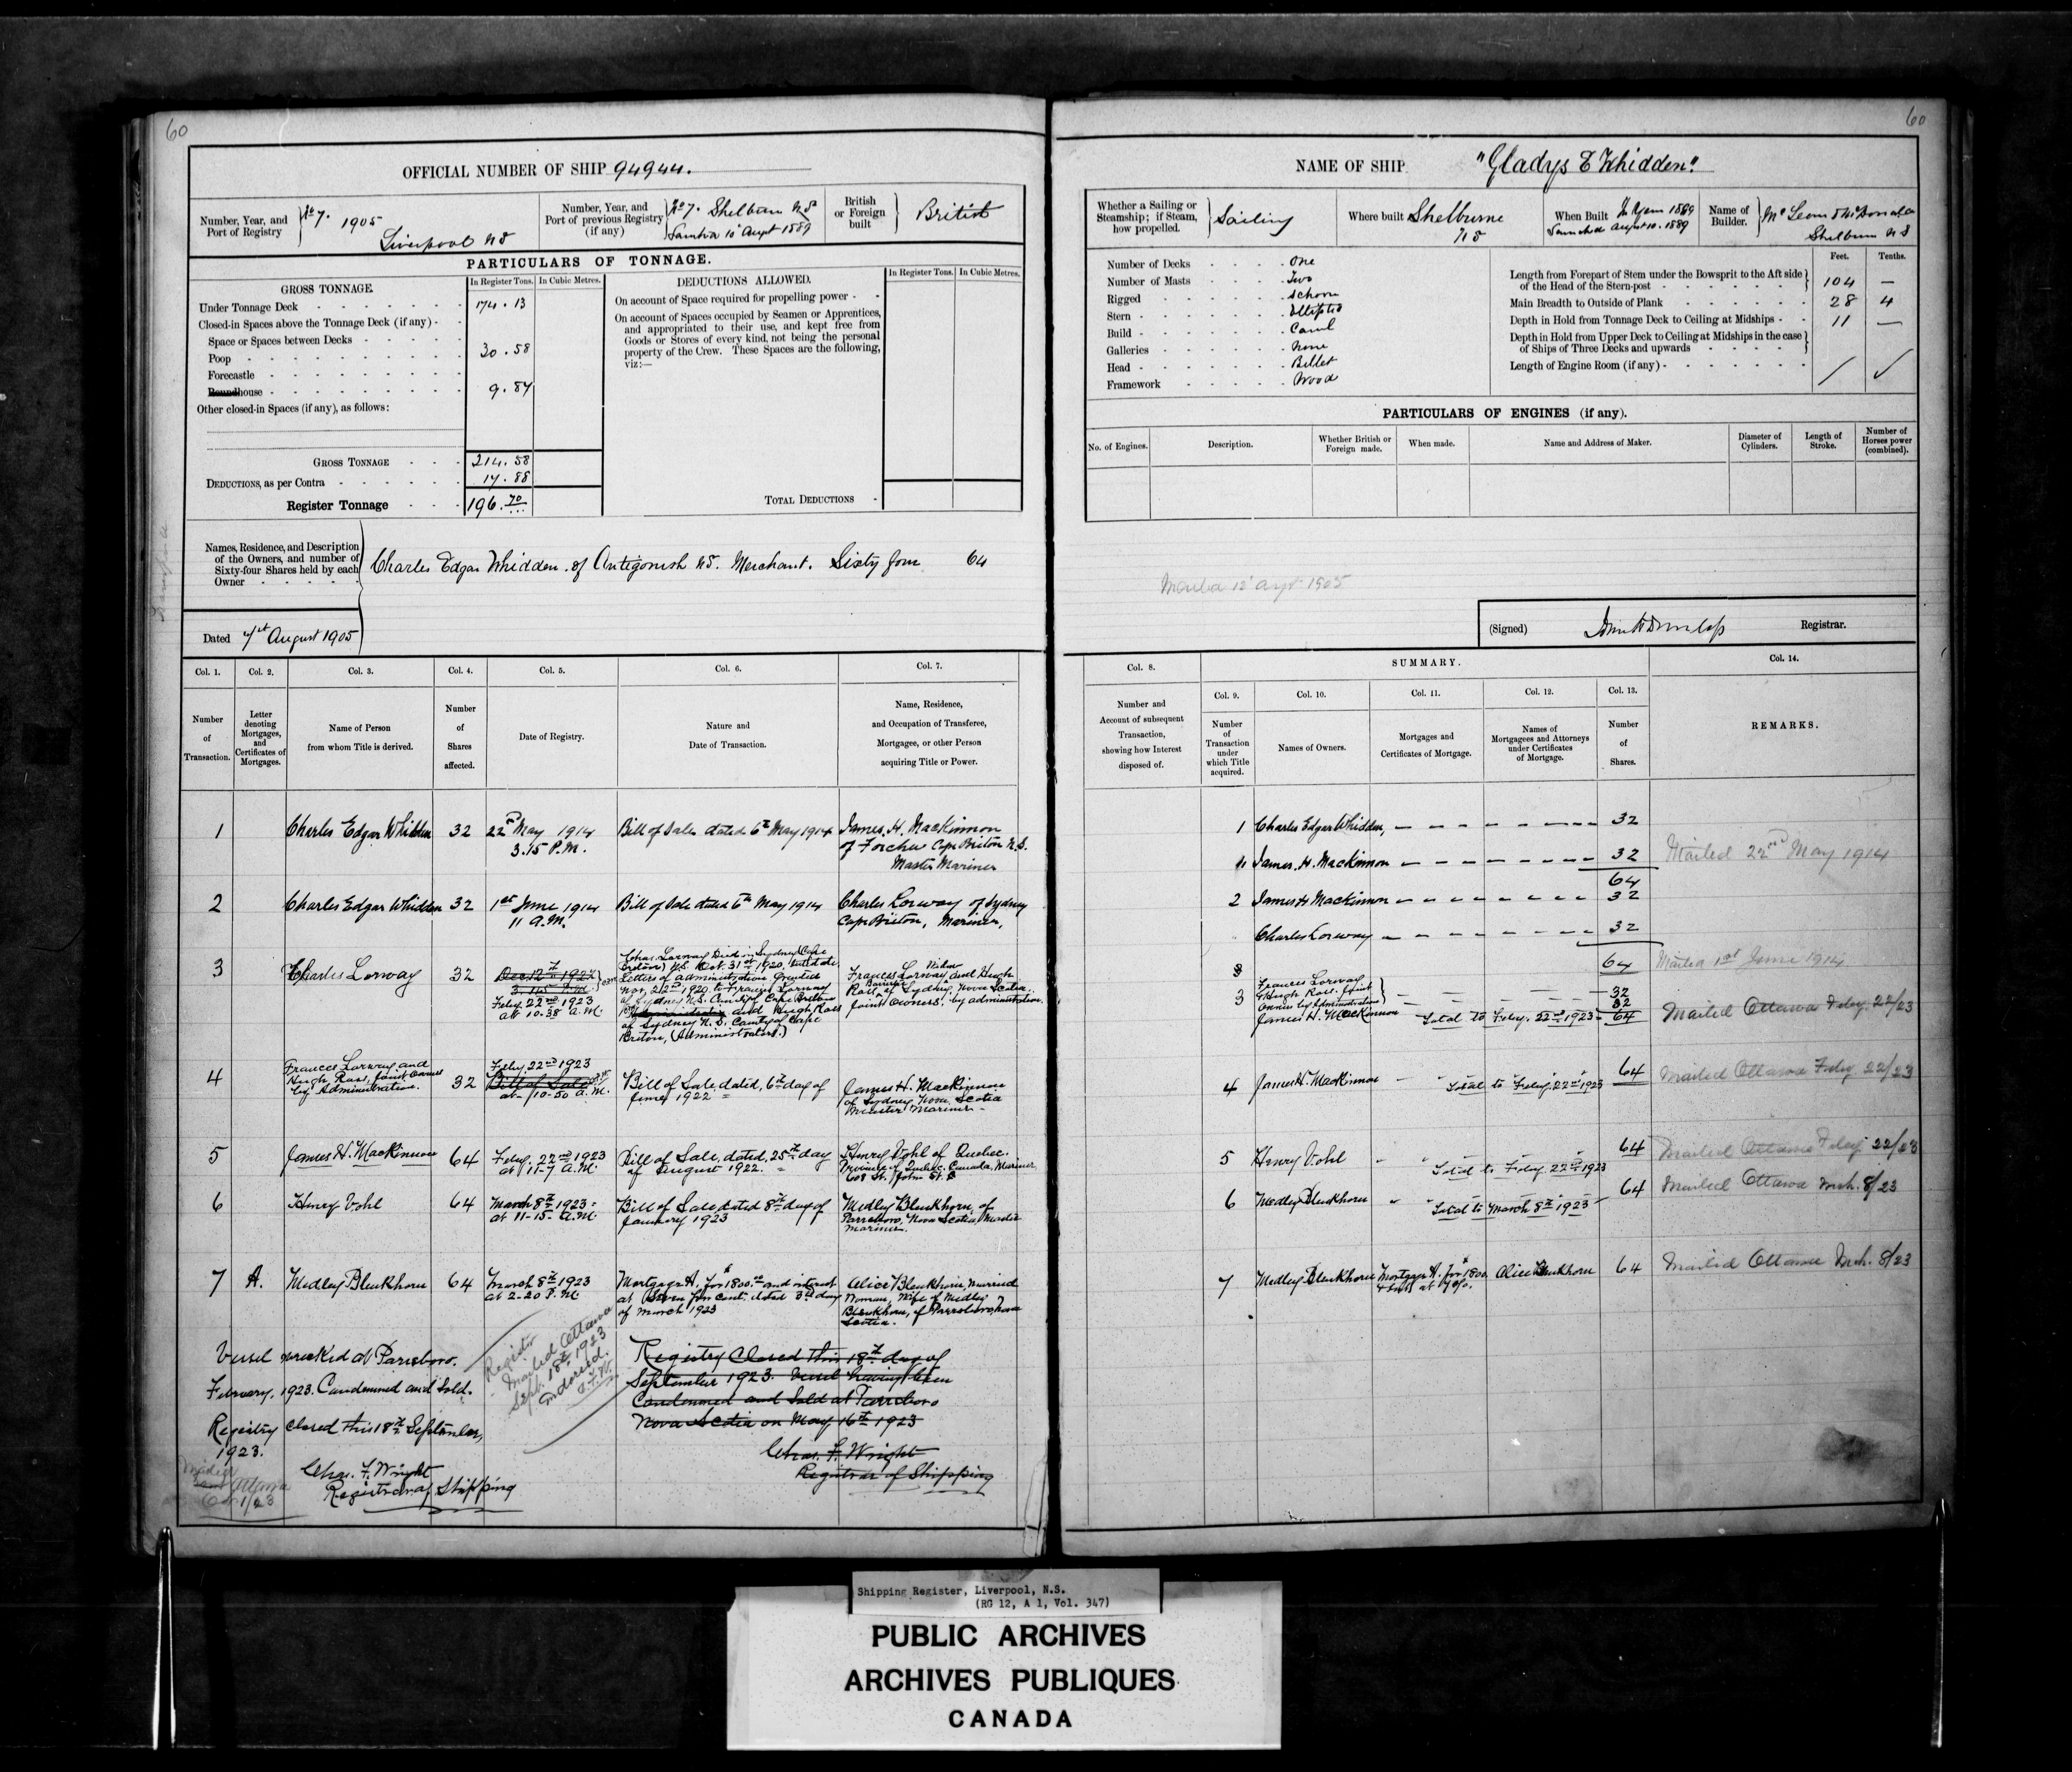 60
60
OFFICIAL NUMBER OF SHIP 94944.
Number, Year, and Port of Registry
No 7. 1905
Liverpool NS
Number, Year, and Port of previous Registry (if any)
No 7. Shelburne NS
10 Augt 1889
British or Foreign built
British
PARTICULARS OF TONNAGE.
GROSS TONNAGE.
In Register Tons.
In Cubic Metres.
Under Tonnage Deck 174.13
Closed-in Spaces above the Tonnage Deck (if any)
Space or Spaces between Decks
Poop 30.58
Forecastle
Roundhouse 9.87
Other closed-in Spaces (if any), as follows:
GROSS TONNAGE 214.58
DEDUCTIONS, as per Contra 17.88
Register Tonnage 196.70
DEDUCTIONS ALLOWED.
In Register Tons.
In Cubic Metres.
On account of Space required for propelling power
On account of Spaces occupied by Seamen or Apprentices,
and appropriated to their use, and kept free from
Goods or Stores of every kind, not being the personal
property of the Crew. These Spaces are the following,
viz:—
TOTAL DEDUCTIONS
Names, Residence, and Description
of the Owners, and number of
Sixty-four Shares held by each
Owner
Charles Edgar Whidden of Antigonish NS. Merchant. Sixty four 64
Dated 7th August 1905
NAME OF SHIP "Gladys E Whidden"
Whether a Sailing or
Steamship; if Steam,
how propelled.
Sailing
Where built Shelburne
NS
When Built In Year 1889
Launched August 10. 1889
Name of Builder.
Shelburne NS
Number of Decks One
Number of Masts Two
Rigged Schonr
Stern Elliptic
Build Carvl
Galleries None
Head Billet
Framework Wood
Feet. Tenths.
Length from Forepart of Stem under the Bowsprit to the Aft side
of the Head of the Stern-post 104 —
Main Breadth to Outside of Plank 28 4
Depth in Hold from Tonnage Deck to Ceiling at Midships 11 —
Depth in Hold from Upper Deck to Ceiling at Midships in the case
of Ships of Three Decks and upwards
Length of Engine Room (if any)
PARTICULARS OF ENGINES (if any).
No. of Engines.
Description.
Whether British or Foreign made.
When made.
Name and Address of Maker.
Diameter of Cylinders.
Length of Stroke.
Number of Horses power (combined).
Mailed 12 Augt 1905
(Signed) John H Dunlap Registrar.
Col. 1. Col. 2. Col. 3. Col. 4. Col. 5. Col. 6. Col. 7.
Number of Transaction.
Letter denoting Mortgages, and Certificates of Mortgages.
Name of Person from whom Title is derived.
Number of Shares affected.
Date of Registry.
Nature and Date of Transaction.
Name, Residence, and Occupation of Transferee, Mortgagee, or other Person acquiring Title or Power.
1 Charles Edgar Whidden 32 22nd May 1914 3.15 P.M. Bill of Sale dated 6th May 1914 James. H. MacKinnon
of Forchu Cape Briton N.S.
Master Mariner
2 Charles Edgar Whidden 32 1st June 1914 11 A.M. Bill of Sale dated 6th May 1914 Charles Lorway of Sydney
Cape Briton, Mariner,
3 Charles Lorway 32
Dec 12th 1922
3.45 P.M.
Feby. 22nd 1923
at 10.38 A.M.
Chas. Lorway Died in Sydney (Cape
Breton) N.S. Oct. 31st 1920. Intestate,
Letters of administration granted
Nov. 22nd 1920 to Frances Lorway
of Sydney N.S. County of Cape Breton
and Hugh Ross
of Sydney N.S. County of Cape
Briton, (Administrators.)
Frances Lorway Widow and Hugh
Ross, Barrister of Sydney, Nova Scotia
Joint Owners, by administration.
4 Frances Lorway and
Hugh Ross, Joint Owners
by Administration. 32
Feby 22nd 1923
Bill of Sale
at 10-50 A.M.
Bill of Sale, dated, 6th day of
June 1922
James H. MacKinnon
of Sydney Nova Scotia
Master Mariner
5 James H. MacKinnon 64 Feby. 22nd 1923
at 11-7 A.M.
Bill of Sale, dated, 25th day
of August 1922.
Henry Vohl of Quebec
Province of Quebec. Canada, Mariner
608 St. John St.
6 Henry Vohl 64 March 8th 1923
at 11-15 A.M.
Bill of Sale dated 8th day of
January 1923
Medley Blenkhorn, of
Parrsboro, Nova Scotia, Master
Mariner.
7 A. Medley Blenkhorn 64 March 8th 1923
at 2-20 P.M.
Mortgage A. for $1800.00 and interest
at Seven per cent, dated 3rd day
of March 1923
Alice Blenkhorn, Married
Woman, Wife of Medley
Blenkhorn, of Parrsboro, Nova
Scotia.
Vessel wrecked at Parrsboro.
February, 1923. Condemned and Sold.
Registry Closed this 18th September,
1923.
Chas. F. Wright
Registrar of Shipping
Ottawa
Oct 1/23
Register
Mailed Ottawa
Sept. 18th 1923
Endorsed.
Registry Closed this 18th day of
September 1923. Vessel having been
Condemned and Sold at Parrsboro
Nova Scotia on May 16th 1923
Chas. F. Wright
Registrar of Shipping
Col. 8. SUMMARY. Col. 14.
Col. 9. Col. 10. Col. 11. Col. 12. Col. 13.
Number and Account of subsequent Transaction, showing how Interest disposed of.
Number of Transaction under which Title acquired.
Names of Owners.
Mortgages and Certificates of Mortgage.
Names of Mortgagees and Attorneys under Certificates of Mortgage.
Number of Shares.
REMARKS.
1 Charles Edgar Whidden, 32
" James. H. MacKinnon 32 Mailed 22nd May 1914
64
2 James H MacKinnon 32
Charles Lorway 32
64 Mailed 1st June 1914
3
3 Frances Lorway
& Hugh Ross. Joint
Owners by Administration 32
James H. MacKinnon 32
Total to Feby. 22nd 1923 64 Mailed Ottawa Feby. 22/23
4 James H. MacKinnon Total to Feby. 22nd 1923 64 Mailed Ottawa Feby 22/23
5 Henry Vohl Total to Feby. 22nd 1923 64 Mailed Ottawa Feby 22/23
6 Medley Blenkhorn Total to March 8th 1923 64 Mailed Ottawa Mch. 8/23
7 Medley Blenkhorn Mortgage A. for $1800. & Int at 7%. Alice Blenkhorn 64 Mailed Ottawa Mch. 8/23
Shipping Register, Liverpool, N.S.
(RG 12, A 1, Vol. 347)
PUBLIC ARCHIVES
ARCHIVES PUBLIQUES
CANADA